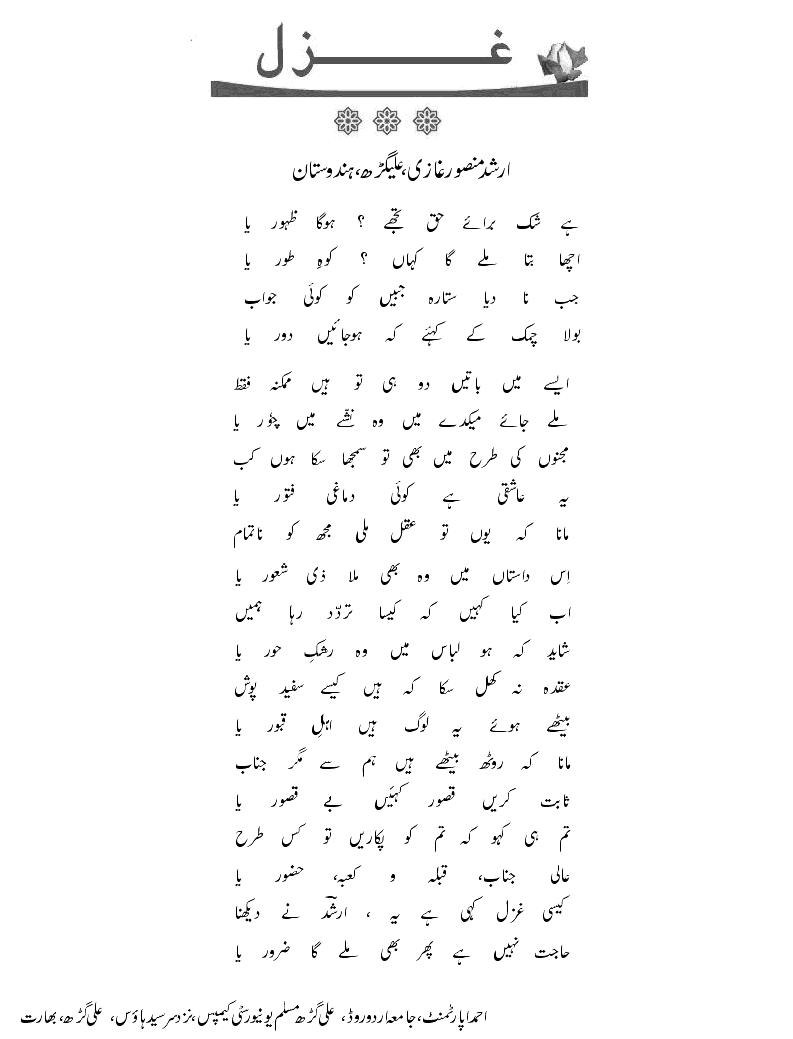 غزل
ارشد منصور غازی، علیگڑھ، ہندوستان
ہے شک برائے حق تجھے ؟ ہوگا ظہور یا
اچھا بتا ملے گا کہاں ؟ کوہِ طور یا
جب نا دیا ستارہ جبیں کو کوئی جواب
بولا چمک کے کہئے کہ ہوجائیں دور یا
ایسے میں باتیں دو ہی تو ہیں ممکنہ فقط
ملے جائے میکدے میں وہ نشّے میں چوٗر یا
مجنوں کی طرح میں بھی تو سمجھا سکا ہوں کب
یہ عاشقی ہے کوئی دماغی فتور یا
مانا کہ یوں تو عقل ملی مجھ کو ناتمام
اِس داستاں میں وہ بھی ملا ذی شعور یا
اب کیا کہیں کہ کیسا تردّد رہا ہمیں
شاید کہ ہو لباس میں وہ رشکِ حور یا
عقدہ نہ کھل سکا کہ ہیں کیسے سفید پوش
بیٹھے ہوئے یہ لوگ ہیں اہلِ قبور یا
مانا کہ روٹھ بیٹھے ہیں ہم سے مگر جناب
ثابت کریں قصور کہئیں بے قصور یا
تم ہی کہو کہ تم کو پکاریں تو کس طرح
عالی جناب، قبلہ و کعبہ، حضور یا
کیسی غزل کہی ہے یہ ، ارشدؔ نے دیکھنا
حاجت نہیں ہے پھر بھی ملے گا ضرور یا
احمد اپارٹمنٹ، جامعہ اردو روڈ، علی گڑھ مسلم یونیورسٹی کیمپس، نزد سرسید ہاؤس، علی گڑھ، بھارت